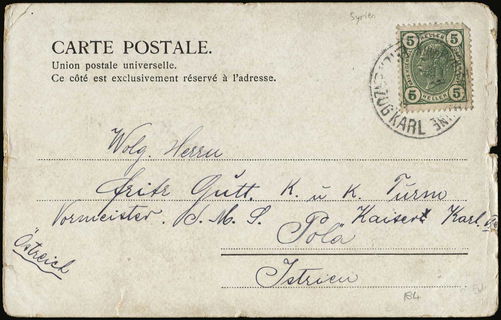 Syrien
CARTE POSTALE.
Union postale universelle.
Ce côté est exclusivement réservé à l'adresse.
5 HELLER 5
5 HELLER 5
ZOG KARL
Wolg. Herrn
Fritz Gutt. K. u K. Turm
Vormeister. S. M. S. Kaiser Karl
Pola
Östreich
Istrien